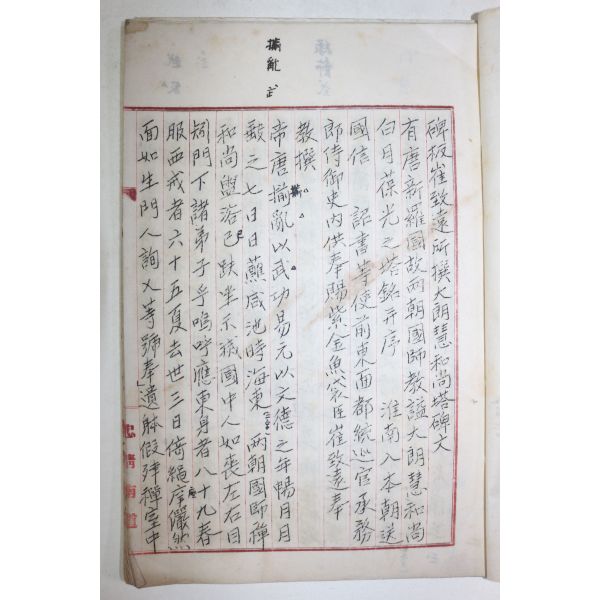 揃亂 武
碑板崔致遠所撰大朗慧和尚塔碑文
有唐新羅國故兩朝國師教謚大朗慧和尚
白月葆光之塔銘幷序 淮南入本朝送
國信 詔書等使前東面都統巡官承務
郎侍御史內供奉賜紫金魚袋臣崔致遠奉
教撰
帝唐揃亂以武功易元以文德之年暢月月
之七日日蘸咸池時海東兩朝國師禪
和尚盥浴已趺坐示滅國中人如喪左右目
矧門下諸弟子乎嗚呼應東身者八十九春
服西戒者六十五夏去世三日倚繩座儼然
面如生門人詢乂等號奉遺躰假肂禪室中
忠淸南道